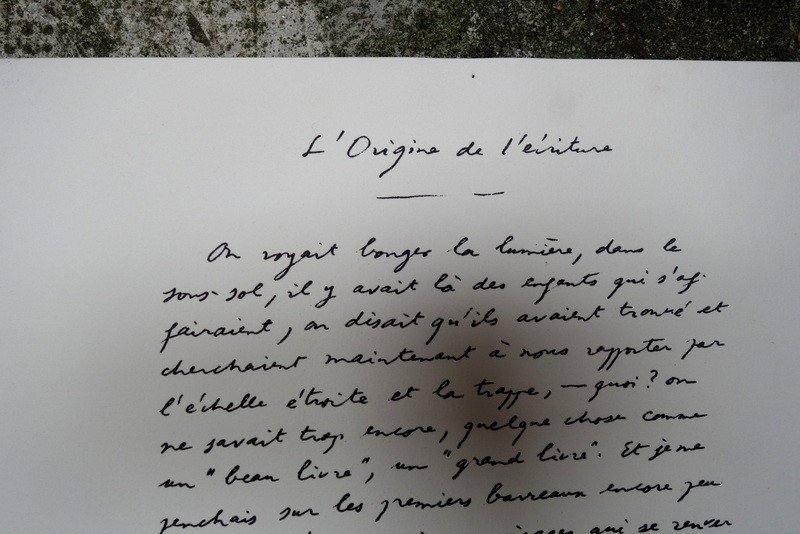 L'Origine de l'écriture
On voyait bouger la lumière, dans le
sous-sol, il y avait là des enfants qui s'af-
fairaient, on disait qu'ils avaient trouvé et
cherchaient maintenant à nous rapporter par
l'échelle étroite et la trappe, — quoi? on
ne savait trop encore, quelque chose comme
un "beau livre", un "grand livre". Et je me
penchais sur les premiers barreaux encore peu
qui se renver